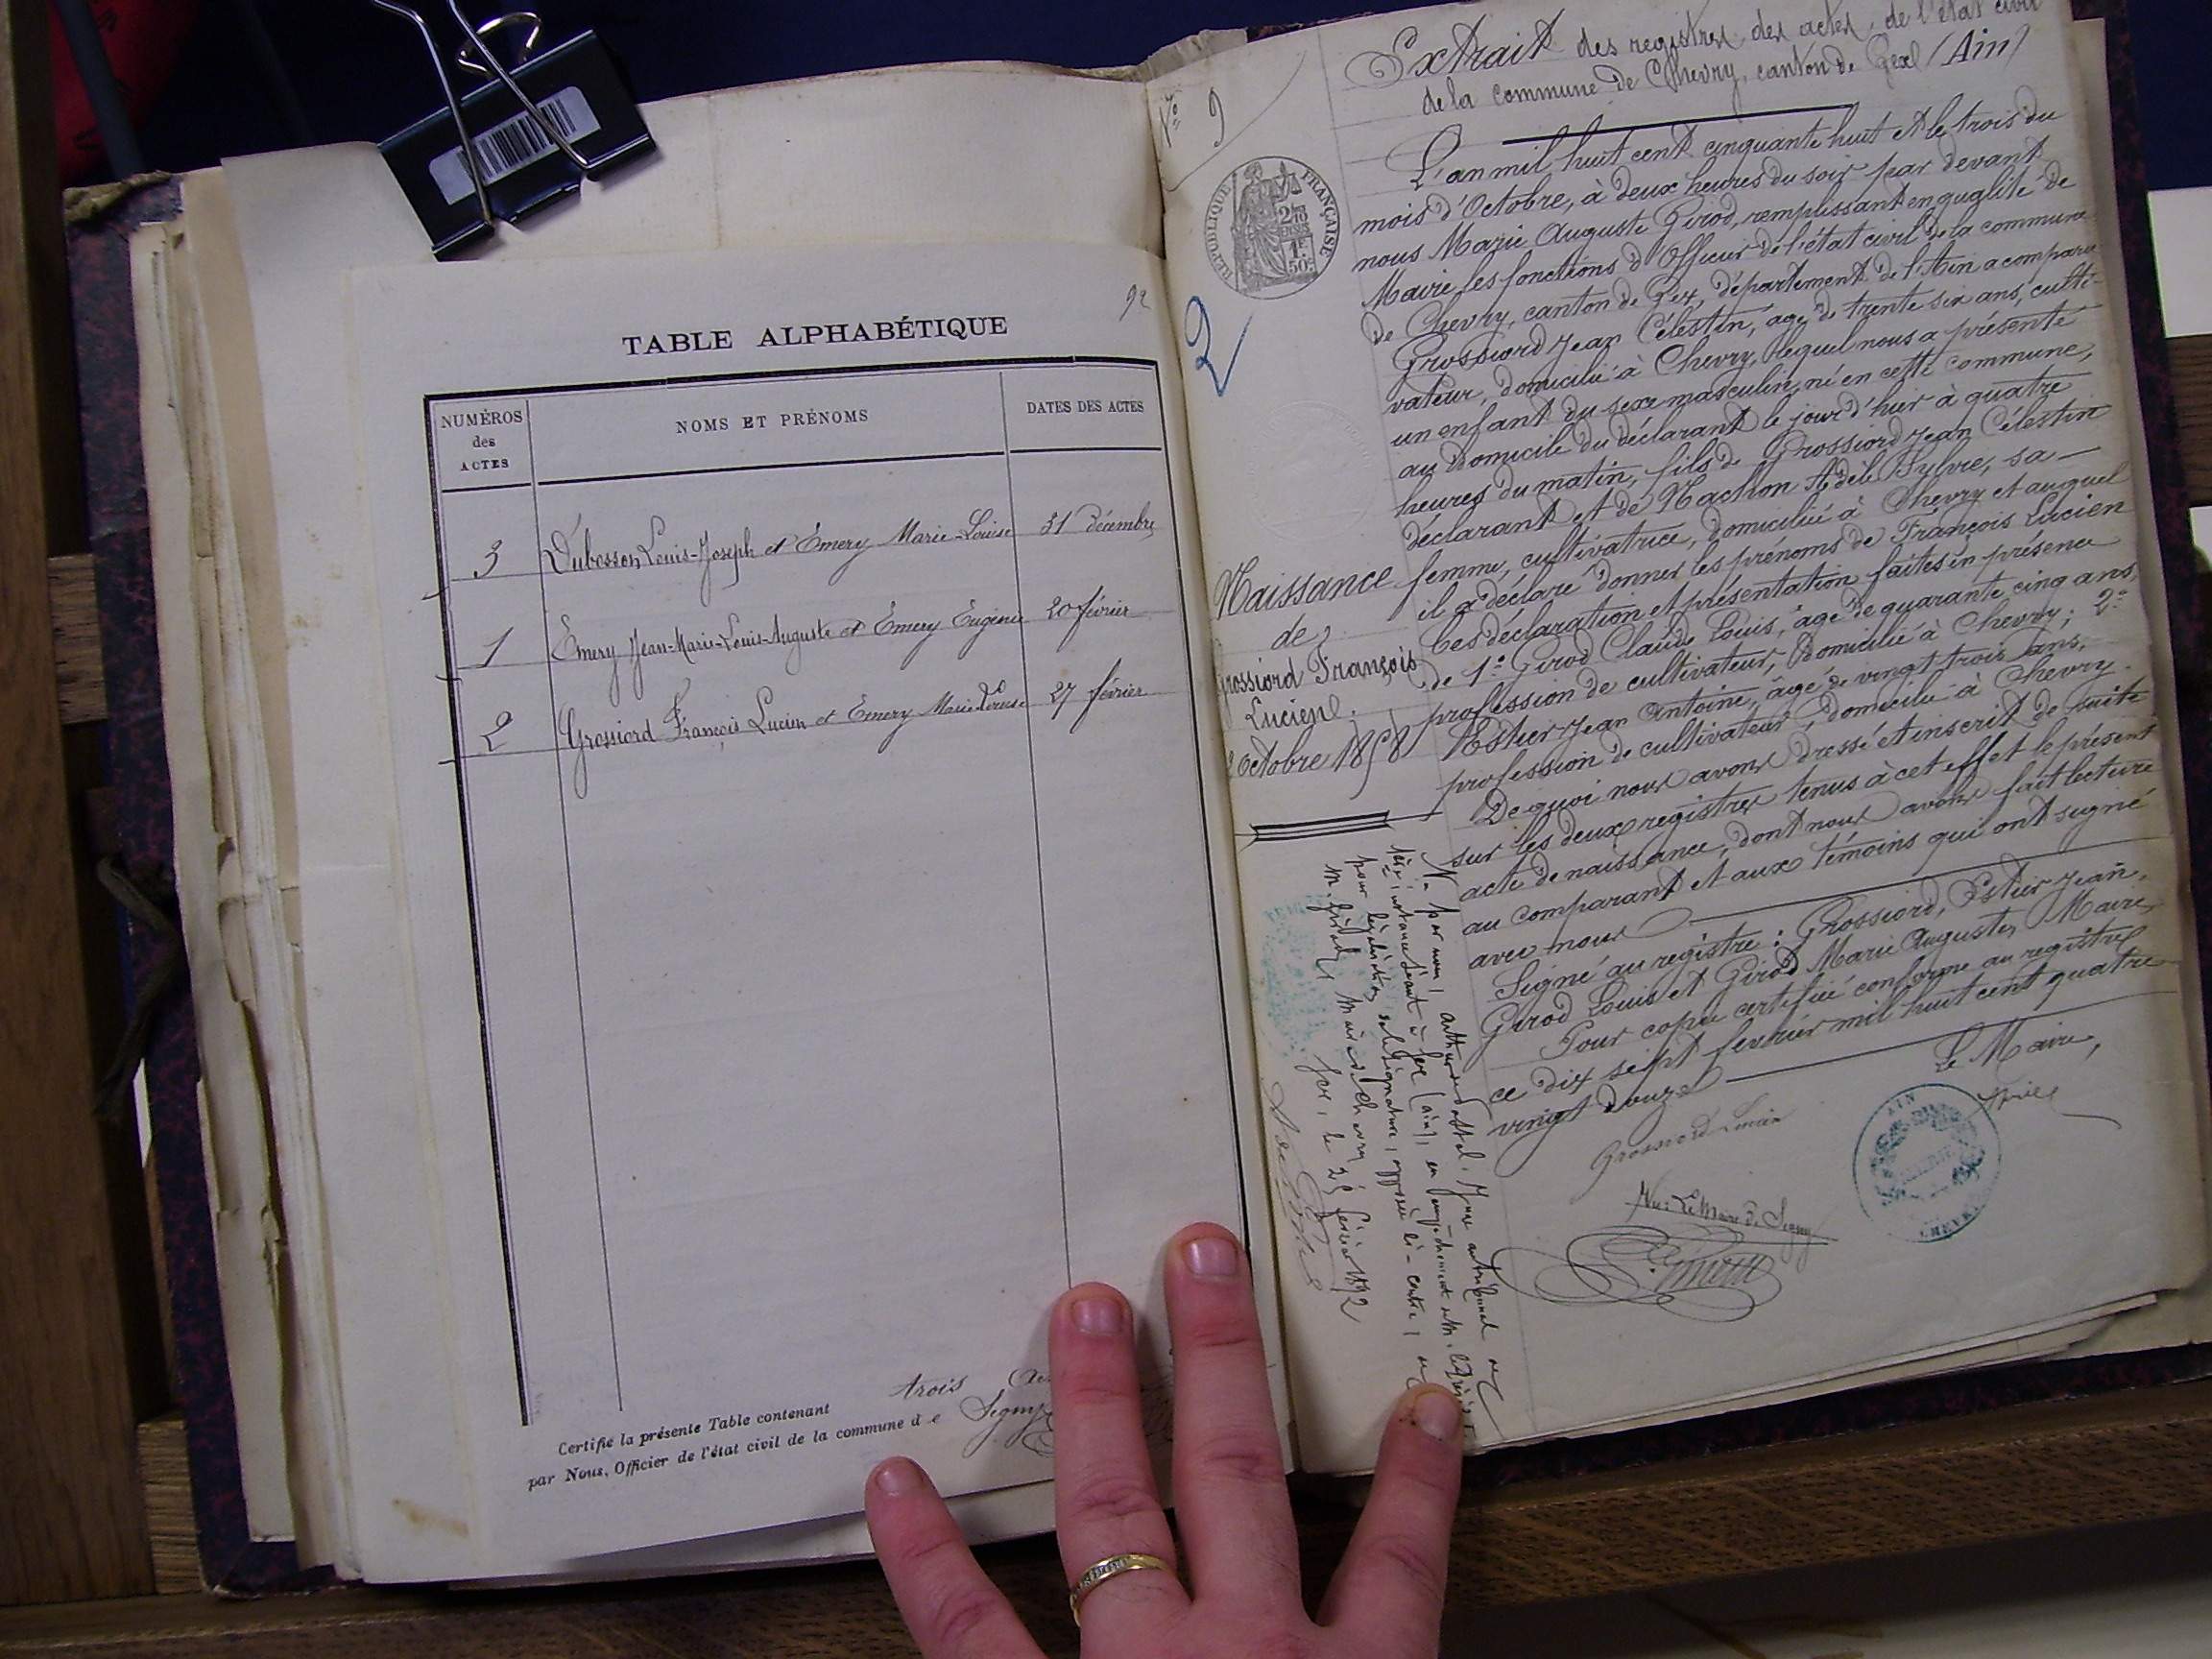 92
TABLE ALPHABÉTIQUE
NUMÉROS des ACTES
NOMS ET PRÉNOMS
DATES DES ACTES
3 Dubosson Louis-Joseph et Emery Marie-Louise 31 décembre
1 Emery Jean-Marie-Louis-Auguste et Emery Eugénie 20 février
2 Grossiord François Lucien et Emery Marie Louise 27 février
Certifié la présente Table contenant trois
par Nous, Officier de l'état civil de la commune de Segny
No 9
RÉPUBLIQUE FRANÇAISE
1F.
50c
2
Extrait des registres des actes de l'état civil
de la commune de Chevry, canton de Gex (Ain)
L'an mil huit cent cinquante huit et le trois du
mois d'Octobre, à deux heures du soir par devant
nous Marie Auguste Girod, remplissant en qualité de
Maire les fonctions d'Officier de l'état civil de la commune
de Chevry, canton de Gex, département de l'Ain a comparu
Grossiord Jean Célestin, âgé de trente six ans, culti-
vateur, domicilié à Chevry, lequel nous a présenté
un enfant du sexe masculin, né en cette commune,
au domicile du déclarant le jour d'hier à quatre
heures du matin, fils de Grossiord Jean Célestin
déclarant et de Machon Adèle Sylvie, sa
femme, cultivatrice, domiciliée à Chevry et auquel
il a déclaré donner les prénoms de François Lucien
Ces déclaration et présentation faites en présence
de 1º Girod Claude Louis, âgé de quarante cinq ans,
profession de cultivateur, domicilié à Chevry; 2º
Estier Jean Antoine, âgé de vingt trois ans,
profession de cultivateur, domicilié à Chevry.
De quoi nous avons dressé et inscrit de suite
sur les deux registres tenus à cet effet le présent
acte de naissance, dont nous avons fait lecture
au comparant et aux témoins qui ont signé
avec nous
Signé au registre: Grossiord, Estier Jean,
Girod Louis et Girod Marie Auguste, Maire,
Pour copie certifiée conforme au registre
ce dix sept février mil huit cent quatre
vingt douze
Le Maire,
Grossiord Lucien
Vu: Le Maire de Segny
AIN
CHEVRY
Naissance
de
Grossiord François
Lucien
2 Octobre 1858
Vu par nous, juge au tribunal de
1ère instance séant à Gex (Ain), en empêchement de M. le Président
pour légalisation de la signature apposée ci-contre, de
M. Girod, Maire de Chevry
Gex, le 25 février 1892